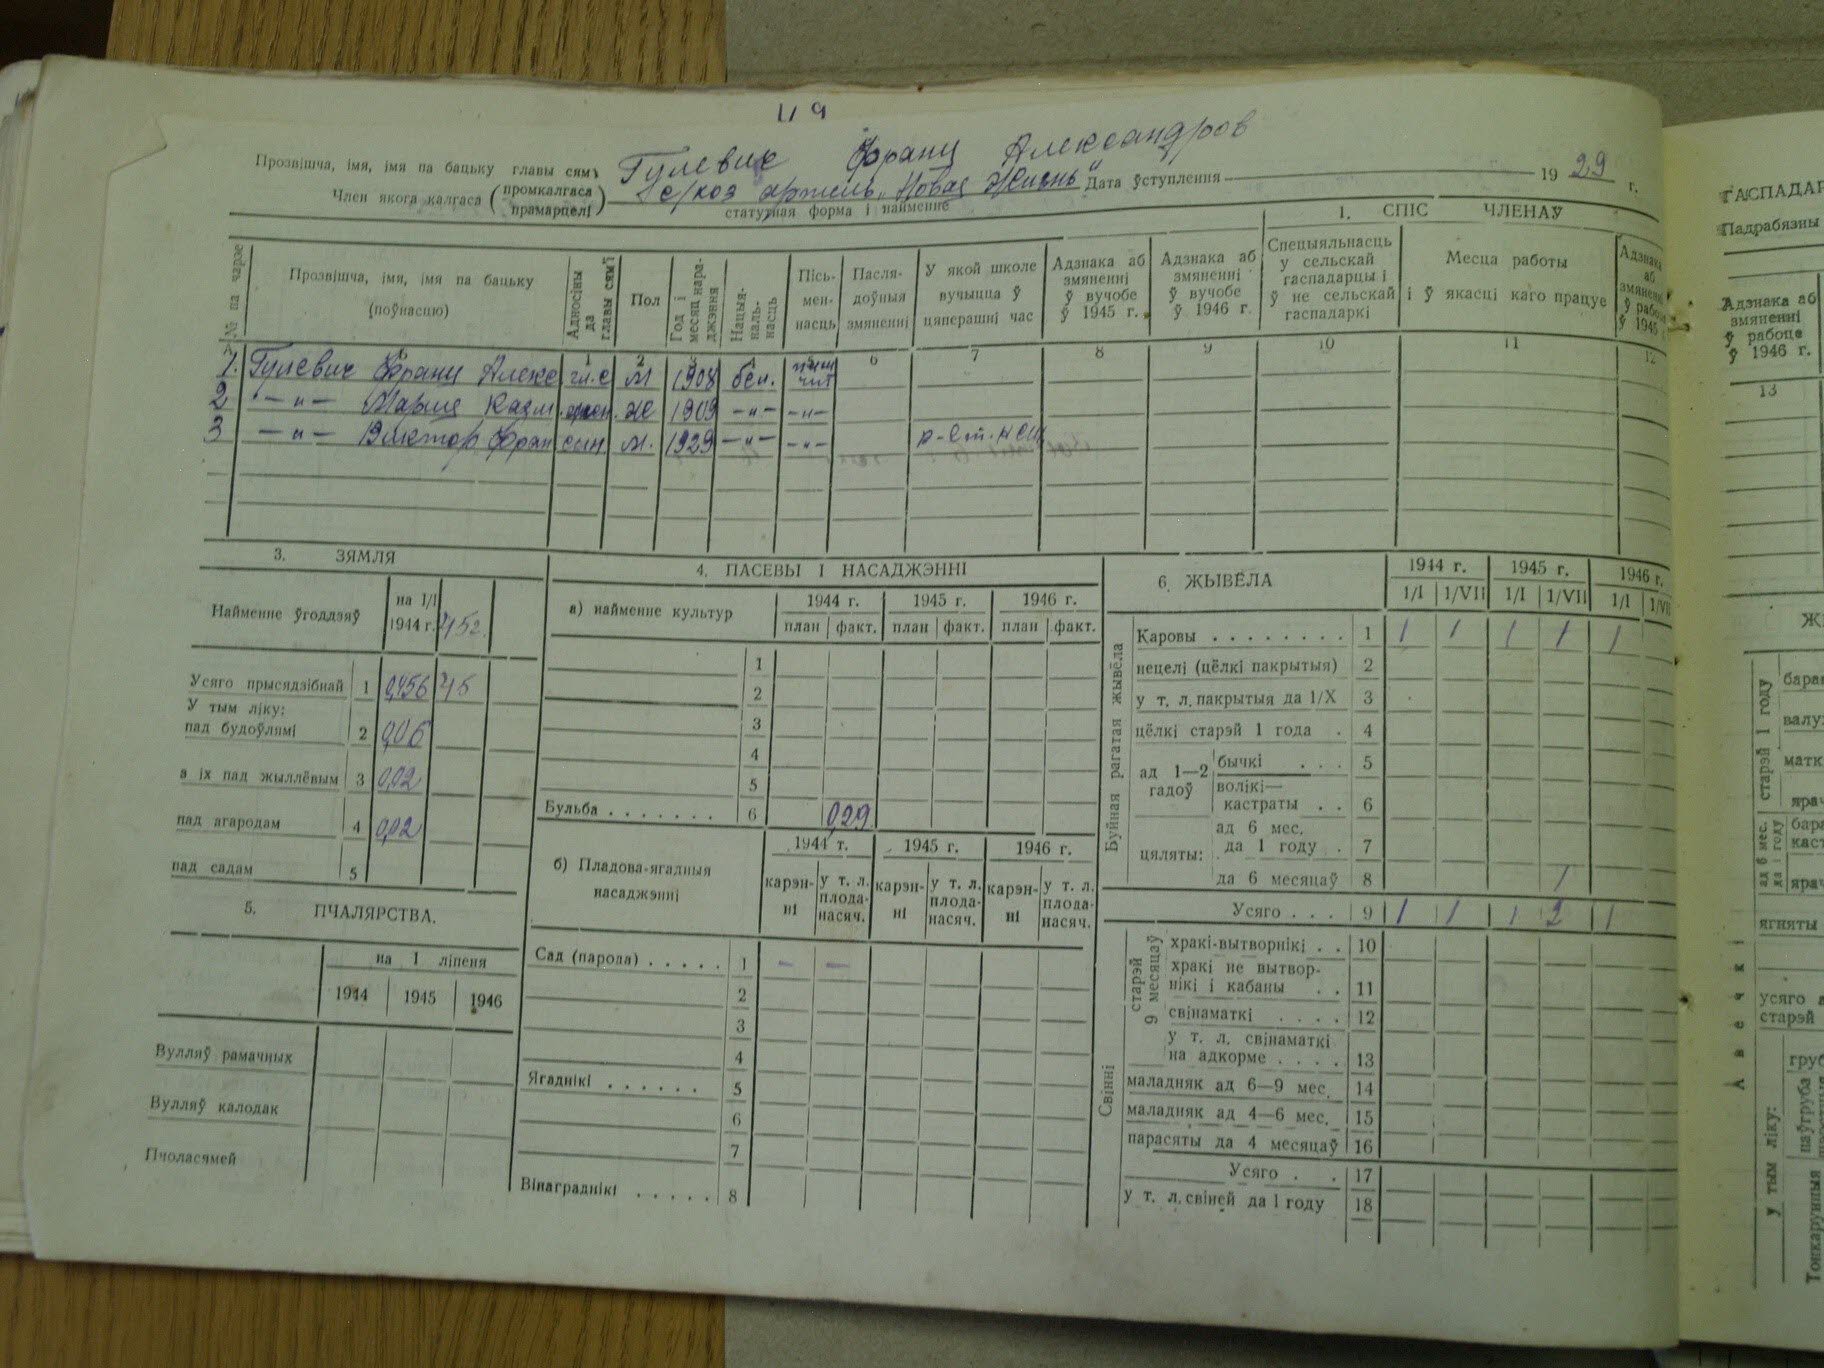 Прозвішча, імя, імя па бацьку главы сям'і Гулевич Франц Александров
Член якога калгаса (промкалгаса прамарцелі) с/хоз артель „Новая Жизнь" Дата ўступлення 1929 г.
статутная форма і найменне
1. СПІС ЧЛЕНАЎ
№ па чарзе
Прозвішча, імя, імя па бацьку (поўнасцю)
Адносіны да главы сям'і
Пол
Год і месяц нараджэння
Нацыянальнасць
Пісьменнасць
Пасля-доўныя змяненні
У якой школе вучыцца ў цяперашні час
Адзнака аб змяненні ў вучобе ў 1945 г.
Адзнака аб змяненні ў вучобе ў 1946 г.
Спецыяльнасць у сельскай гаспадарцы і ў не сельскай гаспадаркі
Месца работы і ў якасці каго працуе
Адзнака аб змяненні ў рабоце ў 1945
1 2 3 4 5 6 7 8 9 10 11 12
1. Гулевич Франц Алекс гл.с м 1908 бел.
2 —"— Мария Казм. жен. ж 1909 —"— —"—
3 —"— Виктор Фран сын м. 1929 —"— —"—
3. ЗЯМЛЯ
Найменне ўгоддзяў
на 1/I 1944 г. 45г.
Усяго прысядзібнай 1 0,456 45
У тым ліку:
пад будоўлямі 2 0,06
з іх пад жыллёвым 3 0,02
пад агародам 4 0,02
пад садам 5
5. ПЧАЛЯРСТВА.
на 1 ліпеня
1944 1945 1946
Вулляў рамачных
Вулляў калодак
Пчоласямей
4. ПАСЕВЫ І НАСАДЖЭННІ
а) найменне культур
1944 г. 1945 г. 1946 г.
план факт. план факт. план факт.
1
2
3
4
5
Бульба . . . . . . . 6 0,29
б) Пладова-ягадныя насаджэнні
1944 г. 1945 г. 1946 г.
карэн-ні у т. л. плода-насяч. карэн-ні у т. л. плода-насяч. карэн-ні у т. л. плода-насяч.
Сад (парода) . . . . . 1 — —
2
3
4
Ягаднікі . . . . . . 5
6
7
Вінаграднікі . . . . . 8
6. ЖЫВЁЛА
1944 г. 1945 г. 1946 г.
1/I 1/VII 1/I 1/VII 1/I 1/VII
Буйная рагатая жывёла
Каровы . . . . . . . . 1 1 1 1 1 1
нецелі (цёлкі пакрытыя) 2
у т. л. пакрытыя да 1/X 3
цёлкі старэй 1 года . 4
ад 1—2 гадоў
бычкі . . . 5
волікі—кастраты . . 6
цяляты:
ад 6 мес. да 1 году . 7
да 6 месяцаў 8 1
Усяго . . . 9 1 1 1 2 1
Свінні
старэй 9 месяцаў
хракі-вытворнікі . . 10
хракі не вытвор-нікі і кабаны . . 11
свінаматкі . . . . 12
у т. л. свінаматкі на адкорме . . . . 13
маладняк ад 6—9 мес. 14
маладняк ад 4—6 мес. 15
парасяты да 4 месяцаў 16
Усяго . . 17
у т. л. свіней да 1 году 18
ГАСПАДАР
Падрабязны
Адзнака аб змяненні ў рабоце ў 1946 г.
13
Авечкі
старэй 1 году
ад 6 мес. да 1 году
ягняты
усяго
старэй
у тым ліку: